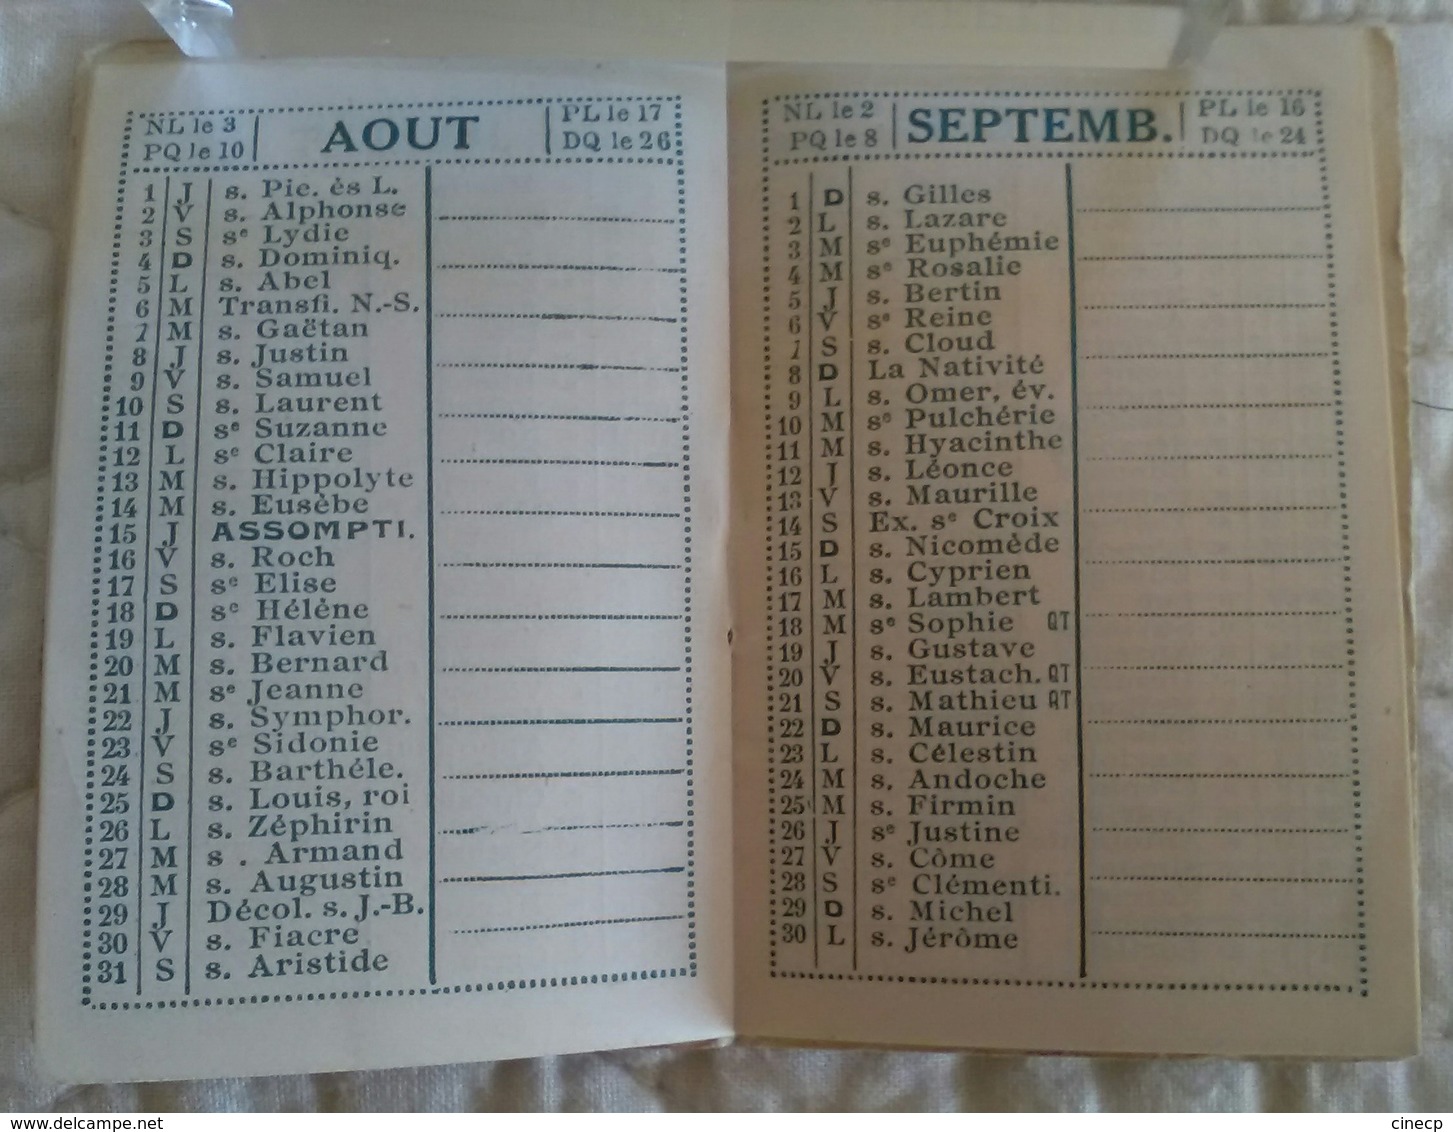 NL le 3
PQ le 10
AOUT
PL le 17
DQ le 26
1 J s. Pie. ès L.
2 V s. Alphonse
3 S sᵉ Lydie
4 D s. Dominiq.
5 L s. Abel
6 M Transfi. N.-S.
7 M s. Gaëtan
8 J s. Justin
9 V s. Samuel
10 S s. Laurent
11 D sᵉ Suzanne
12 L sᵉ Claire
13 M s. Hippolyte
14 M s. Eusèbe
15 J ASSOMPTI.
16 V s. Roch
17 S sᵉ Elise
18 D sᵉ Hélène
19 L s. Flavien
20 M s. Bernard
21 M sᵉ Jeanne
22 J s. Symphor.
23 V sᵉ Sidonie
24 S s. Barthéle.
25 D s. Louis, roi
26 L s. Zéphirin
27 M s . Armand
28 M s. Augustin
29 J Décol. s. J.-B.
30 V s. Fiacre
31 S s. Aristide
NL le 2
PQ le 8
SEPTEMB.
PL le 16
DQ le 24
1 D s. Gilles
2 L s. Lazare
3 M sᵉ Euphémie
4 M sᵉ Rosalie
5 J s. Bertin
6 V sᵉ Reine
7 S s. Cloud
8 D La Nativité
9 L s. Omer, év.
10 M sᵉ Pulchérie
11 M s. Hyacinthe
12 J s. Léonce
13 V s. Maurille
14 S Ex. sᵉ Croix
15 D s. Nicomède
16 L s. Cyprien
17 M s. Lambert
18 M sᵉ Sophie QT
19 J s. Gustave
20 V s. Eustach. QT
21 S s. Mathieu QT
22 D s. Maurice
23 L s. Célestin
24 M s. Andoche
25 M s. Firmin
26 J sᵉ Justine
27 V s. Côme
28 S sᵉ Clémenti.
29 D s. Michel
30 L s. Jérôme
www.delcampe.net
cinecp